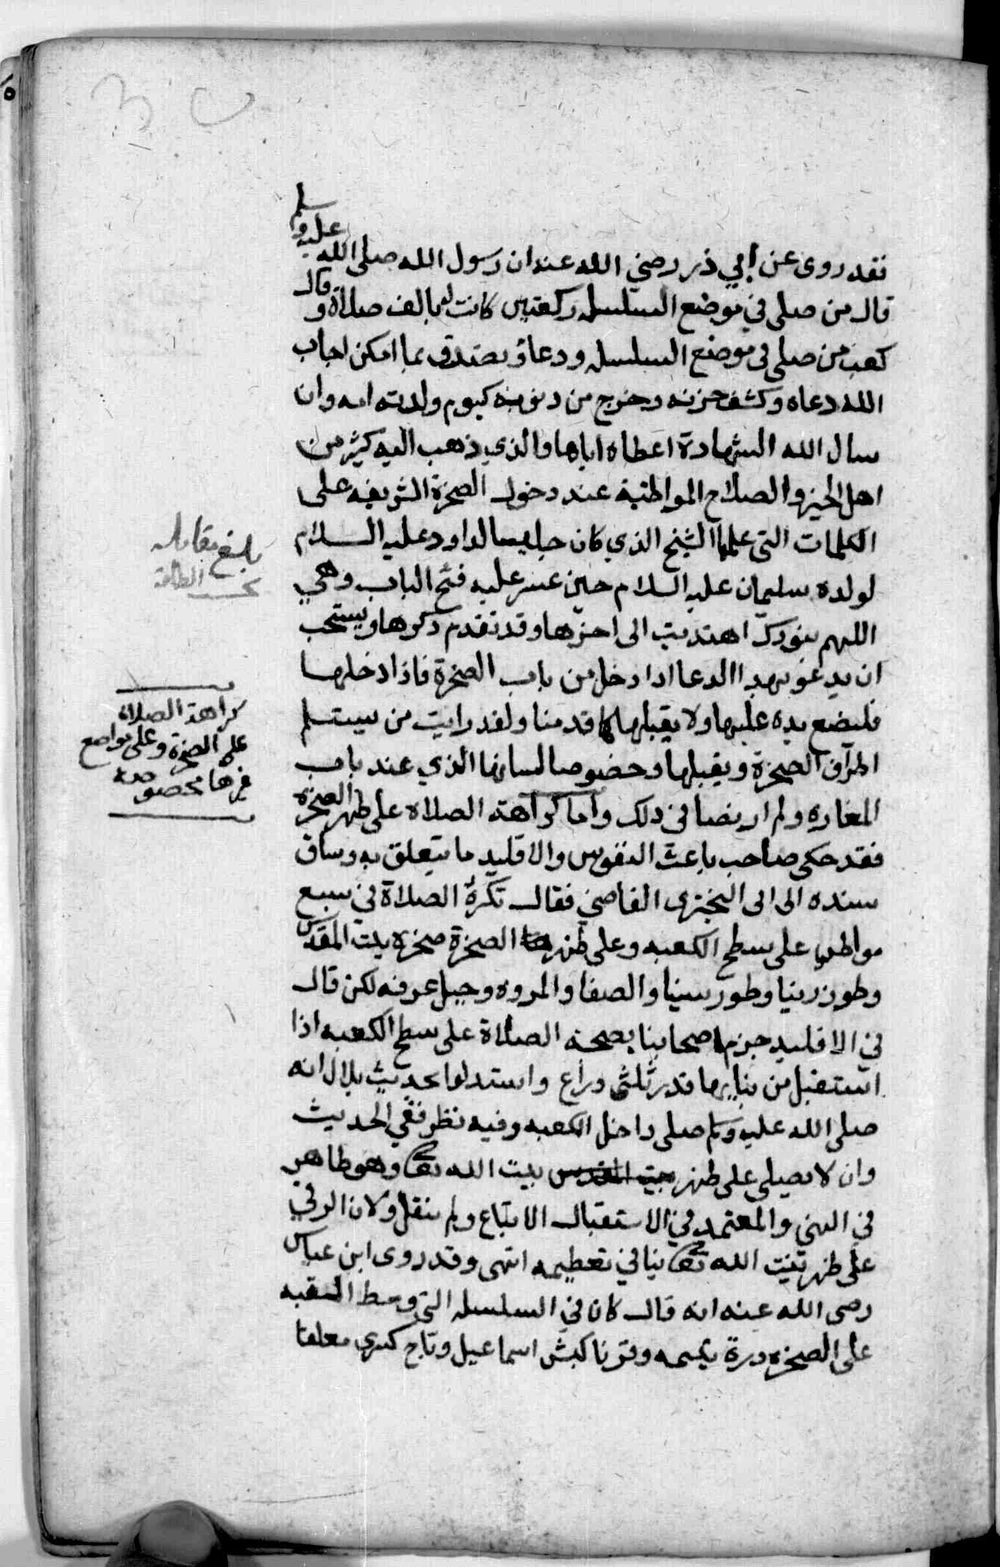 فقد روى عن ابي ذر رضي الله عنه ان رسول الله صلى الله عليه وسلم
قال من صلى في موضع السلسله ركعتين كانت له بالف صلاة وقال
كعب من صلى في موضع السلسله ودعا وتصدق بما امكن اجاب
الله دعاه وكشف حزنه وخرج من ذنوبه كيوم ولدته امه وان
سال الله الشهادة اعطاه اياها والذي ذهب اليه كثير من
اهل الخير والصلاح المواظبة عند دخول الصخرة الشريفه على
الكلمات التي علمها الشيخ الذي كان جليسا لداود عليه السلام
لولده سليمان عليه السلام حين عسر عليه فتح الباب وهي
اللهم بنورك اهتديت الى اخرها وقد تقدم ذكرها ويستحب
ان يدعو بهذا الدعا اذا دخل من باب الصخرة فاذا دخلها
فليضع يده عليها ولا يقبلها كما قدمنا ولقد رايت من يستلم
الصخرة ويقبلها وخصوصا لسانها الذي عند باب
المغاره ولم ار نصا في ذلك واما كراهة الصلاه على ظهر الصخره
فقد حكى صاحب باعث النفوس والاقليد ما يتعلق به وساق
سنده الى ابى البختري القاضي فقال تكره الصلاة في سبع
مواطن على سطح الكعبه وعلى ظهر الصخرة صخرة بيت المقدس
وطور زيتا وطور سينا والصفا والمروه وجبل عرفه لكن قال
في الاقليد جزم اصحابنا بصحة الصلاة على سطح الكعبه اذا
استقبل من بنايها قدر ثلثي ذراع واستدلوا بحديث بلال انه
صلى الله عليه وسلم صلى داخل الكعبه وفيه نظر ففي الحديث
وان لا يصلى على ظهر بيت الله تعالى وهو ظاهر
في النهي والمعتمد في الاستقبال الاتباع ولم ينقل ولان الرقي
على ظهر بيت الله تعالى ينافي تعظيمه انتهى وقد روى ابن عباس
رضي الله عنه انه قال كان في السلسله التي وسط القبه
على الصخره درة يتيمه وقرنا كبش اسماعيل وتاج كسرى معلقا
بلغ مقابله
كراهة الصلاة
على الصخرة وعلى مواضع
غيرها مخصوصة